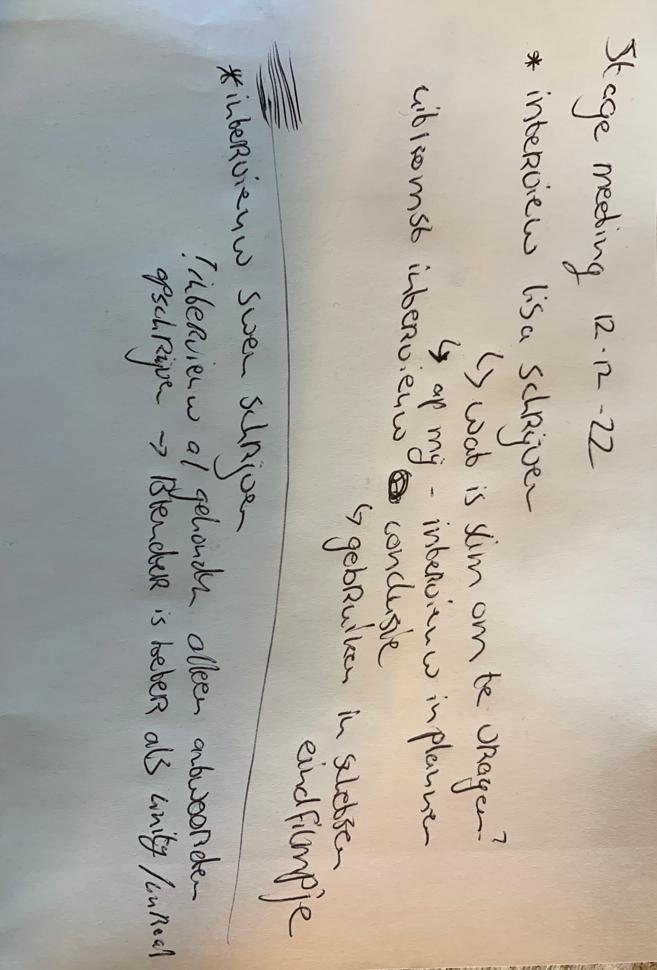 Stage meeting 12-12-22
* interview lisa schrijven
↳ wat is slim om te vragen?
↳ ap mij - interview inplannen
uitkomst interview conclusie
↳ gebruiken in schetsen
eindfilmpje
* interview swen schrijven
! interview al gehouden alleen antwoorden
opschrijven → Blender is beter als unity/unreal